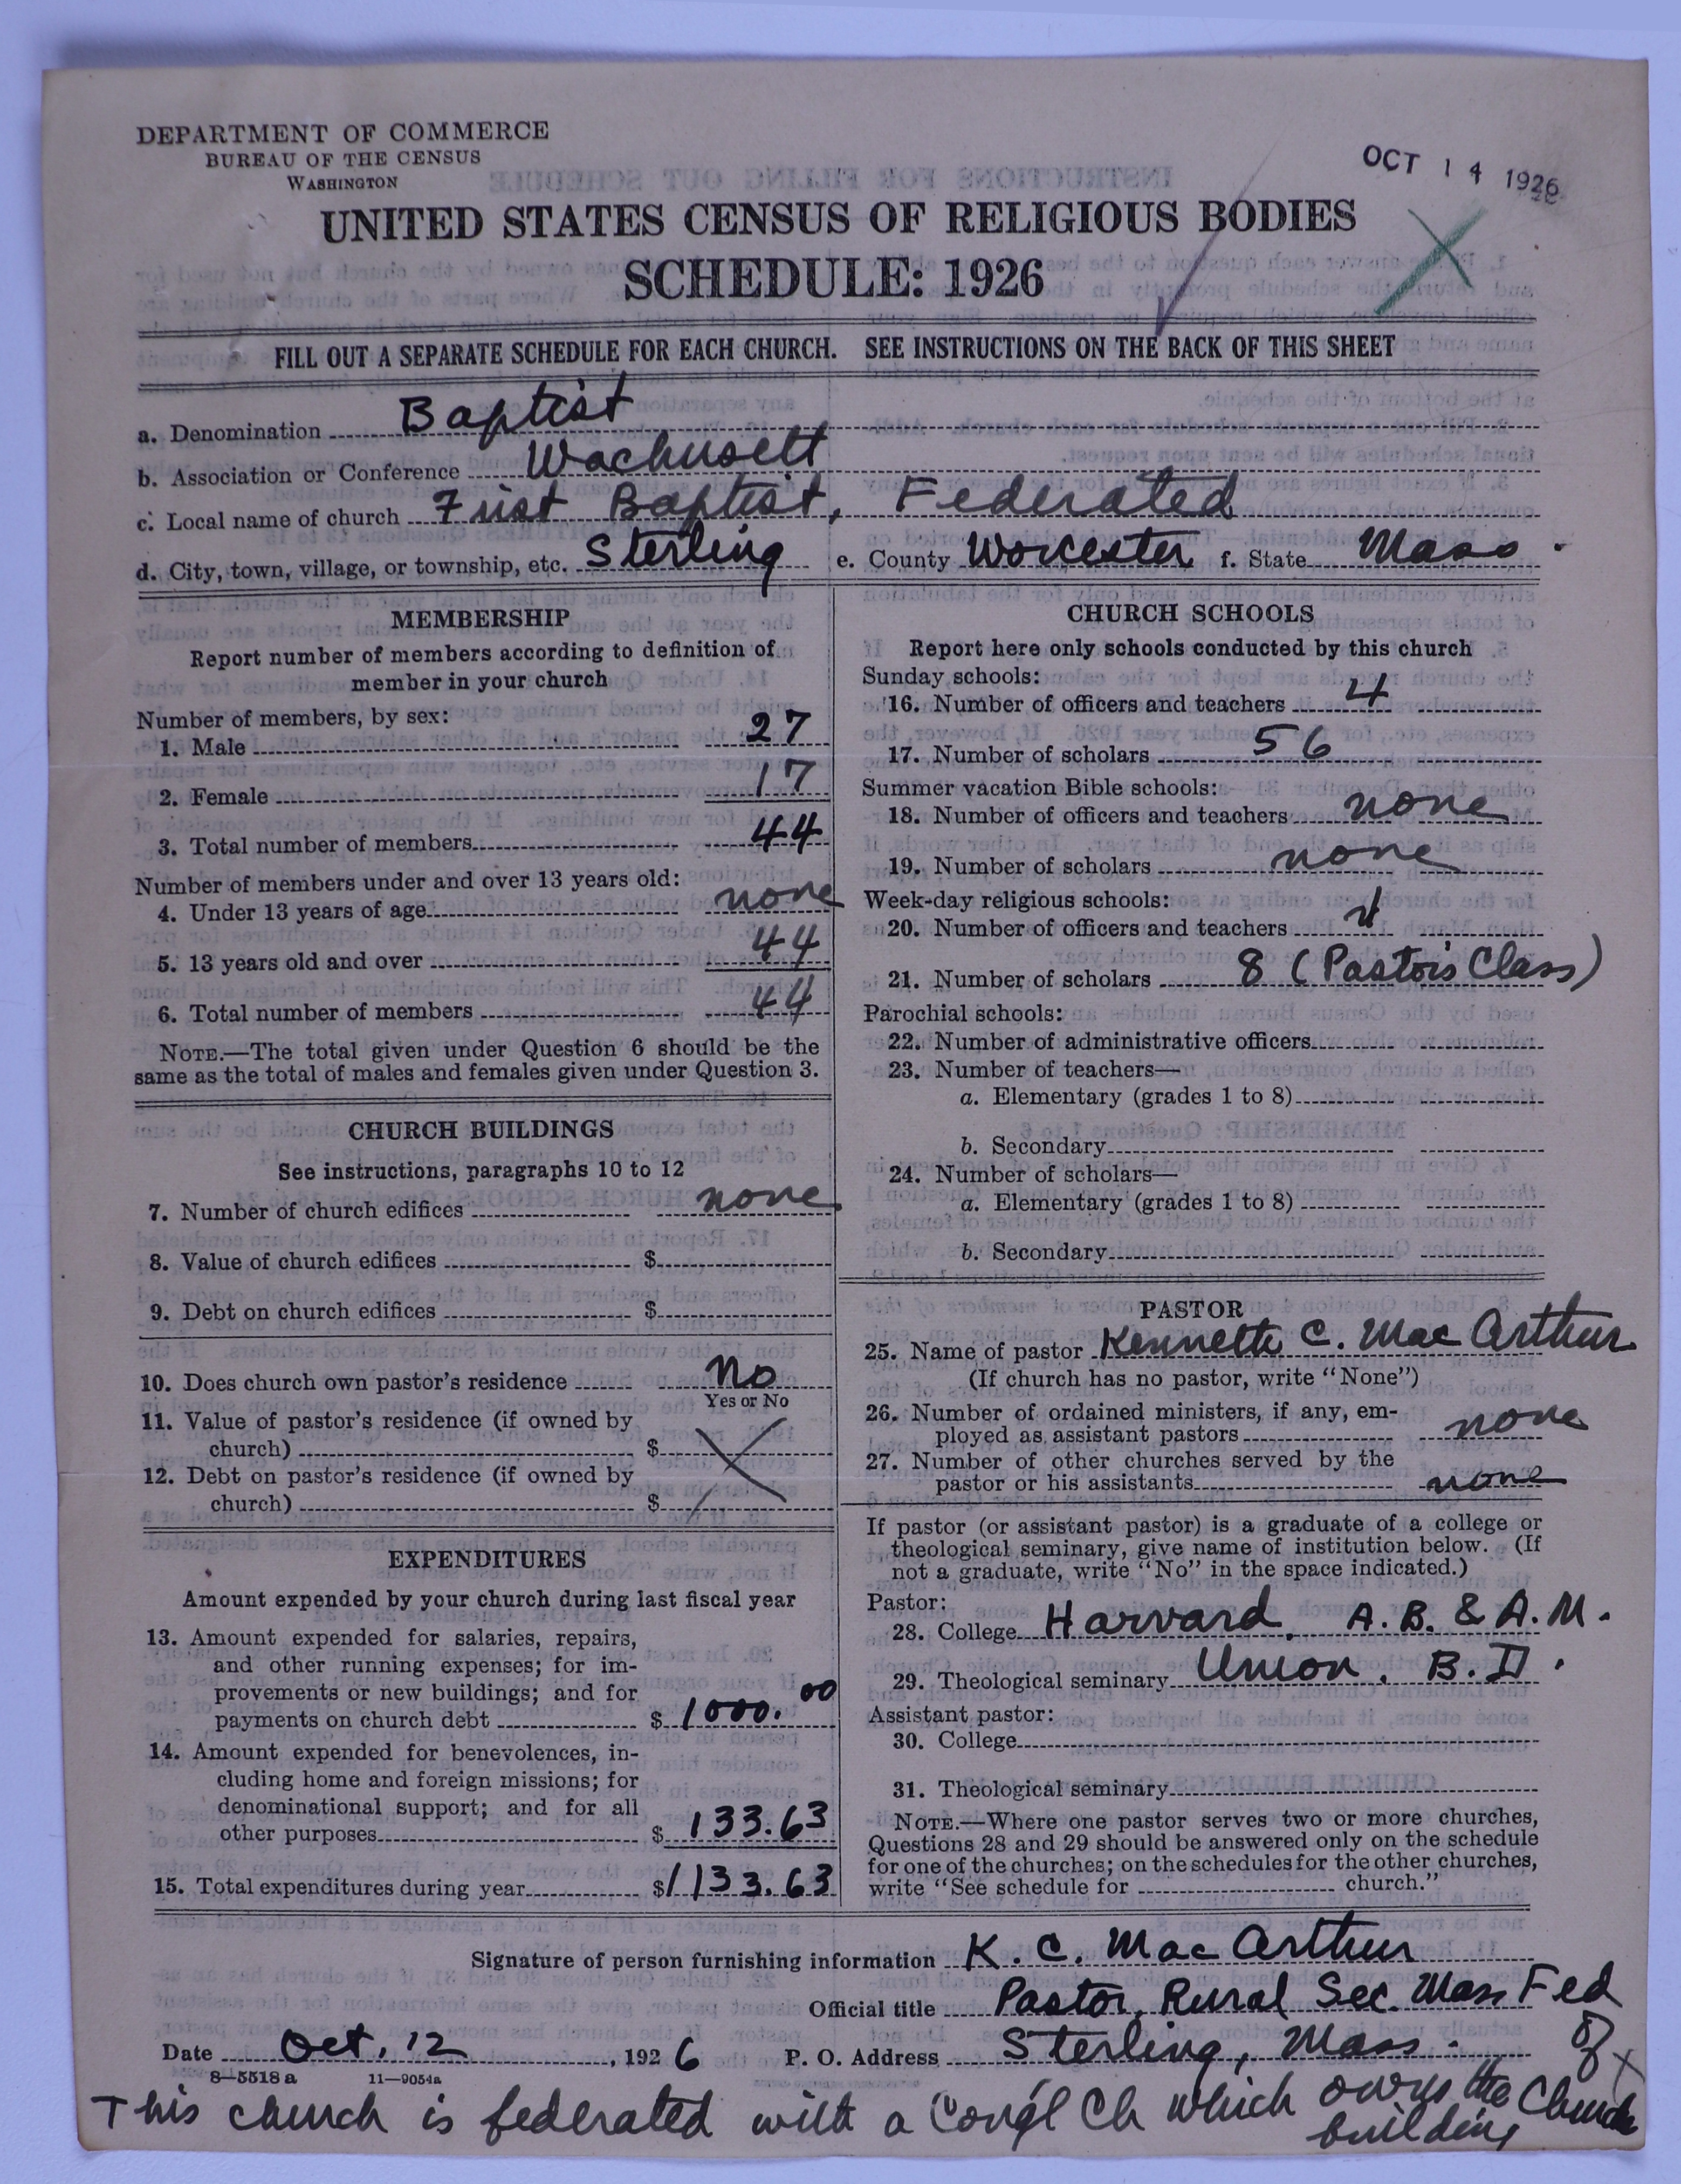 DEPARTMENT OF COMMERCE
BUREAU OF THE CENSUS
WASHINGTON
OCT 14 1926
UNITED STATES CENSUS OF RELIGIOUS BODIES
SCHEDULE: 1926
FILL OUT A SEPARATE SCHEDULE FOR EACH CHURCH. SEE INSTRUCTIONS ON THE BACK OF THIS SHEET
a. Denomination Baptist
b. Association or Conference Wachusett
c. Local name of church First Baptist, Federated
d. City, town, village, or township, etc. Sterling e. County Worcester f. State Mass.
MEMBERSHIP
Report number of members according to definition of
member in your church
Number of members, by sex:
1. Male 27
2. Female 17
3. Total number of members 44
Number of members under and over 13 years old:
4. Under 13 years of age none
5. 13 years old and over 44
6. Total number of members 44
NOTE.—The total given under Question 6 should be the
same as the total of males and females given under Question 3.
CHURCH BUILDINGS
See instructions, paragraphs 10 to 12
7. Number of church edifices none
8. Value of church edifices $
9. Debt on church edifices $
10. Does church own pastor's residence No
Yes or No
11. Value of pastor's residence (if owned by
church) $
12. Debt on pastor's residence (if owned by
church) $
EXPENDITURES
Amount expended by your church during last fiscal year
13. Amount expended for salaries, repairs,
and other running expenses; for im-
provements or new buildings; and for
payments on church debt $ 1000.00
14. Amount expended for benevolences, in-
cluding home and foreign missions; for
denominational support; and for all
other purposes $ 133.63
15. Total expenditures during year $1133.63
CHURCH SCHOOLS
Report here only schools conducted by this church
Sunday schools:
16. Number of officers and teachers 4
17. Number of scholars 56
Summer vacation Bible schools:
18. Number of officers and teachers none
19. Number of scholars none
Week-day religious schools:
20. Number of officers and teachers
21. Number of scholars 8 (Pastor's Class)
Parochial schools:
22. Number of administrative officers
23. Number of teachers—
a. Elementary (grades 1 to 8)
b. Secondary
24. Number of scholars—
a. Elementary (grades 1 to 8)
b. Secondary
PASTOR
25. Name of pastor Kenneth C. MacArthur
(If church has no pastor, write "None")
26. Number of ordained ministers, if any, em-
ployed as assistant pastors none
27. Number of other churches served by the
pastor or his assistants none
If pastor (or assistant pastor) is a graduate of a college or
theological seminary, give name of institution below. (If
not a graduate, write "No" in the space indicated.)
Pastor:
28. College Harvard, A.B. & A.M.
29. Theological seminary Union, B.D.
Assistant pastor:
30. College
31. Theological seminary
NOTE.—Where one pastor serves two or more churches,
Questions 28 and 29 should be answered only on the schedule
for one of the churches; on the schedules for the other churches,
write "See schedule for church."
Signature of person furnishing information K. C. MacArthur
Official title Pastor, Rural Sec. Mass Fed
of
Date Oct. 12, 1926 P. O. Address Sterling, Mass.
8—5518a 11—9054a
This church is federated with a Cong'l Ch which owns the Church
building